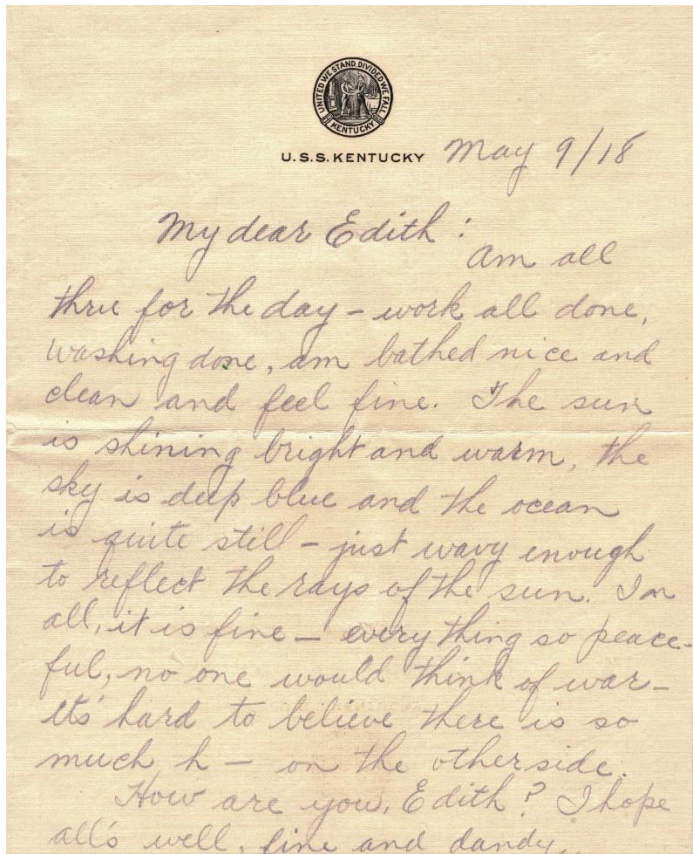 UNITED WE STAND, DIVIDED WE FALL
KENTUCKY
U.S.S. KENTUCKY May 9/18
My dear Edith :
Am all
thru for the day – work all done,
washing done, am bathed nice and
clean and feel fine. The sun
is shining bright and warm, the
sky is deep blue and the ocean
is quite still – just wavy enough
to reflect the rays of the sun. In
all, it is fine – everything so peace-
ful, no one would think of war –
its' hard to believe there is so
much h – on the otherside.
How are you, Edith? I hope
all's well, fine and dandy.